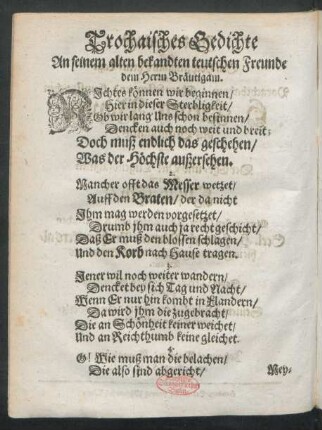 Trochaisches Gedichte
An seinem alten bekandten teutschen Freunde
dem Herrn Bräutigam.
NIchtes können wir beginnen/
Hier in dieser Sterbligkeit/
Ob wir lang Uns schon besinnen/
Dencken auch noch weit und breit:
Doch muß endlich das geschehen/
Was der Höchste außersehen.
2.
Mancher offt das Messer wetzet/
Auff den Braten/ der da nicht
Jhm mag werden vorgesetzet/
Drumb jhm auch ja recht geschicht/
Daß Er muß den blossen schlagen/
Und den Korb nach Hause tragen.
3.
Jener wil noch weiter wandern/
Dencket bey sich Tag und Nacht/
Wenn Er nur hin kombt in Flandern/
Da wird jhm die zugebracht/
Die an Schönheit keiner weichet/
Und an Reichthumb keine gleichet.
4.
O! Wie muß man die belachen/
Die also sind abgericht/
Mey-